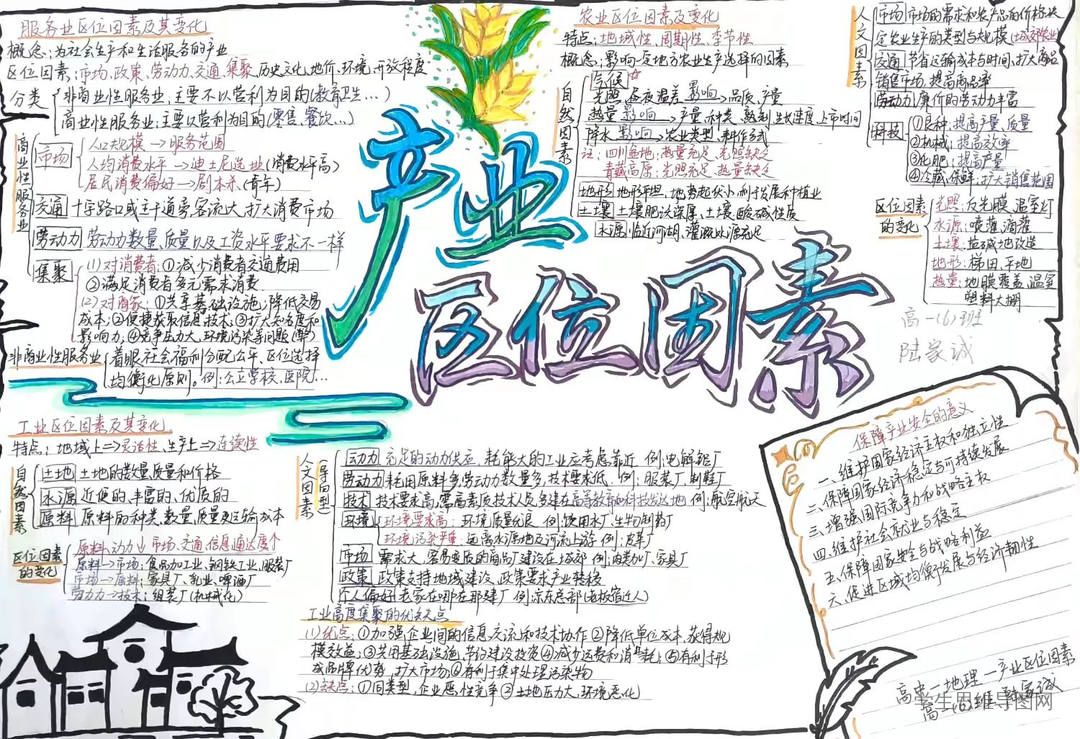 服务业区位因素及其变化
概念:为社会生产和生活服务的产业
区位因素:市场、政策、劳动力、交通、集聚、历史文化、地价、环境、开放程度
分类
非商业性服务业:主要不以营利为目的(教育卫生…)
商业性服务业:主要以营利为目的(零售、餐饮…)
商业性服务业
市场
人口规模→服务范围
人均消费水平→迪士尼选址(消费水平高)
居民消费偏好→剧本杀(青年)
交通 十字路口或主干道旁,客流大,扩大消费市场
劳动力 劳动力数量、质量以及工资水平要求不一样
集聚
(1)对消费者:①减少消费者交通费用
②满足消费者多元需求消费
(2)对商家:①共享基础设施,降低交易
成本;②便捷获取信息技术;③扩大知名度和
影响力;④竞争压力大,环境污染等问题(弊)
非商业性服务业
着眼社会福利分配公平、区位选择
均衡化原则。例:公立学校、医院…
产业
区位因素
农业区位因素及变化
特点:地域性、周期性、季节性
概念:影响一定地方农业生产选择的因素
自然因素
气候
光照、昼夜温差 影响→品质、产量
热量 影响→产量、种类、熟制、生长速度、上市时间
降水 影响→农业类型、耕作方式
注:四川盆地:热量充足,光照缺乏
青藏高原:光照充足,热量缺乏
地形 地形平坦,地势起伏小,利于发展种植业
土壤 土壤肥沃深厚,土壤酸碱性质
水源 临近河湖,灌溉水源充足
人文因素
市场 市场的需求和农产品的价格决
定农业生产的类型与规模(城郊农业)
交通 节省运输成本与时间,扩大商品
销售市场,提高商品率
劳动力 廉价的劳动力丰富
科技
①良种:提高产量、质量
②机械:提高效率
③化肥:提高产量
④冷藏、保鲜:扩大销售范围
区位因素
的变化
光照:反光膜、温室灯
水源:喷灌、滴灌
土壤:盐碱地改造
地形:梯田、平地
热量:地膜覆盖、温室
塑料大棚
高一(6)班
陆家诚
工业区位因素及其变化
特点:地域上⇒灵活性,生产上⇒连续性
自然因素
土地 土地的数量、质量和价格
水源 近便的、丰富的、优质的
原料 原料的种类、数量、质量及运输成本
区位因素
的变化
原料、动力↓ 市场、交通、信息通达度↑
原料→市场:食品加工业、钢铁工业、服装厂
市场→原料:家具厂、乳业、啤酒厂
劳动力→技术:组装厂(机械化)
人文因素
导向型
动力 充足的动力供应,耗能大的工业应考虑靠近 例:电解铝厂
劳动力 耗用原料多,劳动力数量多,技术要求低、例:服装厂、制鞋厂
技术 技术要求高,需高素质技术人员,多建在高等教育和科技发达地 例:航空航天
环境
环境要求高:环境质量优良 例:饮用水厂、生物制药厂
环境污染严重:远离水源地及河流上游 例:皮革厂
市场 需求大、容易变质的商品厂建设在城郊 例:肉类加工厂、家具厂
政策 政策支持地域建设,政策需求产业转移
个人偏好 老家在哪在那建厂 例:凉茶总部(老板宿迁人)
工业高度集聚的优缺点
(1)优点:①加强企业间的信息交流和技术协作 ②降低单位成本,获得规
模效益;③共用基础设施,节约建设投资 ④减少运费和消耗;⑤有利于形
成品牌优势,扩大市场;⑥有利于集中处理污染物
(2)缺点:①同类型,企业恶性竞争 ②土地压力大,环境恶化
保障产业安全的意义
一、维护国家经济主权和独立性
二、保障国家经济稳定与可持续发展
三、增强国际竞争力和战略主权
四、维护社会就业与稳定
五、保障国家安全与战略利益
六、促进区域均衡发展与经济韧性
高中一地理一产业区位因素
高一(6)班 陆家诚
学生思维导图网